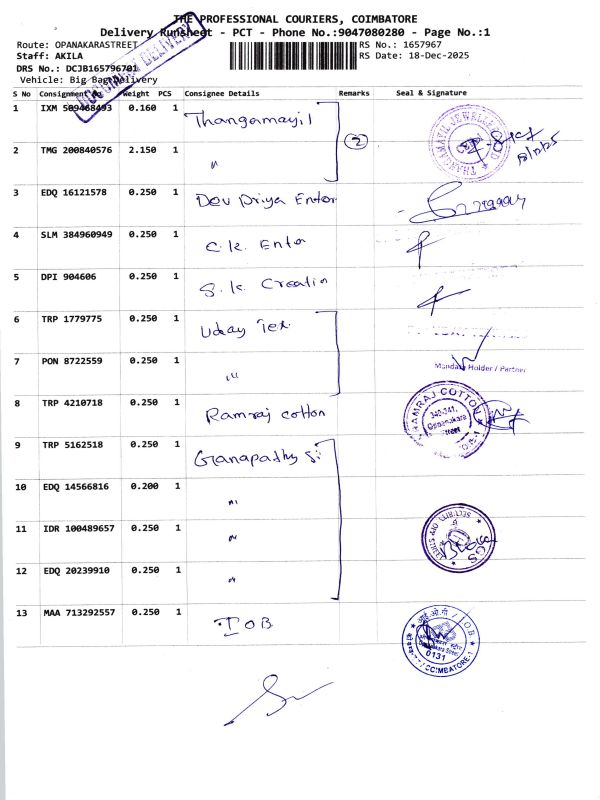 THE PROFESSIONAL COURIERS, COIMBATORE
Delivery Runsheet - PCT - Phone No.:9047080280 - Page No.:1
Route: OPANAKARASTREET
RS No.: 1657967
Staff: AKILA
RS Date: 18-Dec-2025
DRS No.: DCJB165796701
Vehicle: Big Bag Delivery
DELIVERY
S No Consignment No Weight PCS Consignee Details Remarks Seal & Signature
1 IXM 509468493 0.160 1 Thangamayil
2
THANGAMAYIL JEWELLERY
2 TMG 200840576 2.150 1 "
3 EDQ 16121578 0.250 1 Dev Priya Enter
4 SLM 384960949 0.250 1 C.K. Enter
5 DPI 904606 0.250 1 S.K. Creation
6 TRP 1779775 0.250 1 Uday Tex
7 PON 8722559 0.250 1 "
Holder / Partner
8 TRP 4210718 0.250 1 Ramraj Cotton
RAMRAJ COTTON
340-341,
Oppanakara
Street
9 TRP 5162518 0.250 1 Ganapathy Si
10 EDQ 14566816 0.200 1 "
11 IDR 100489657 0.250 1 "
12 EDQ 20239910 0.250 1 "
13 MAA 713292557 0.250 1 IOB
आई.ओ.बी / IOB
0131
COIMBATORE-1